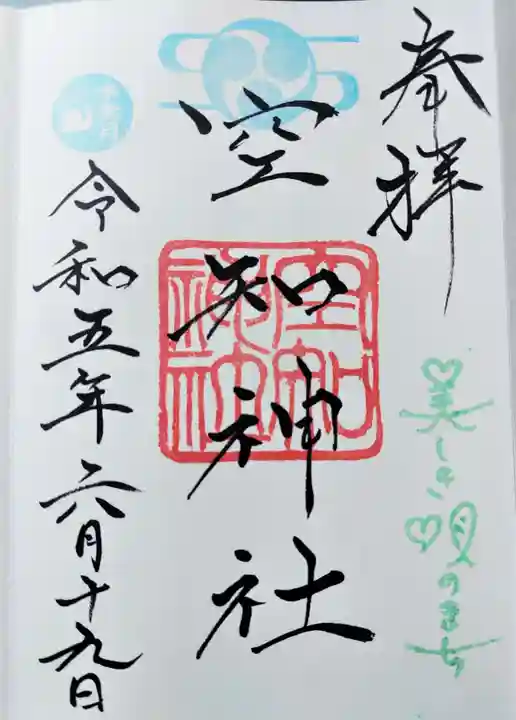 奉拝
♡美しき♡唄のまち
空知神社
空知神社
令和五年六月十九日